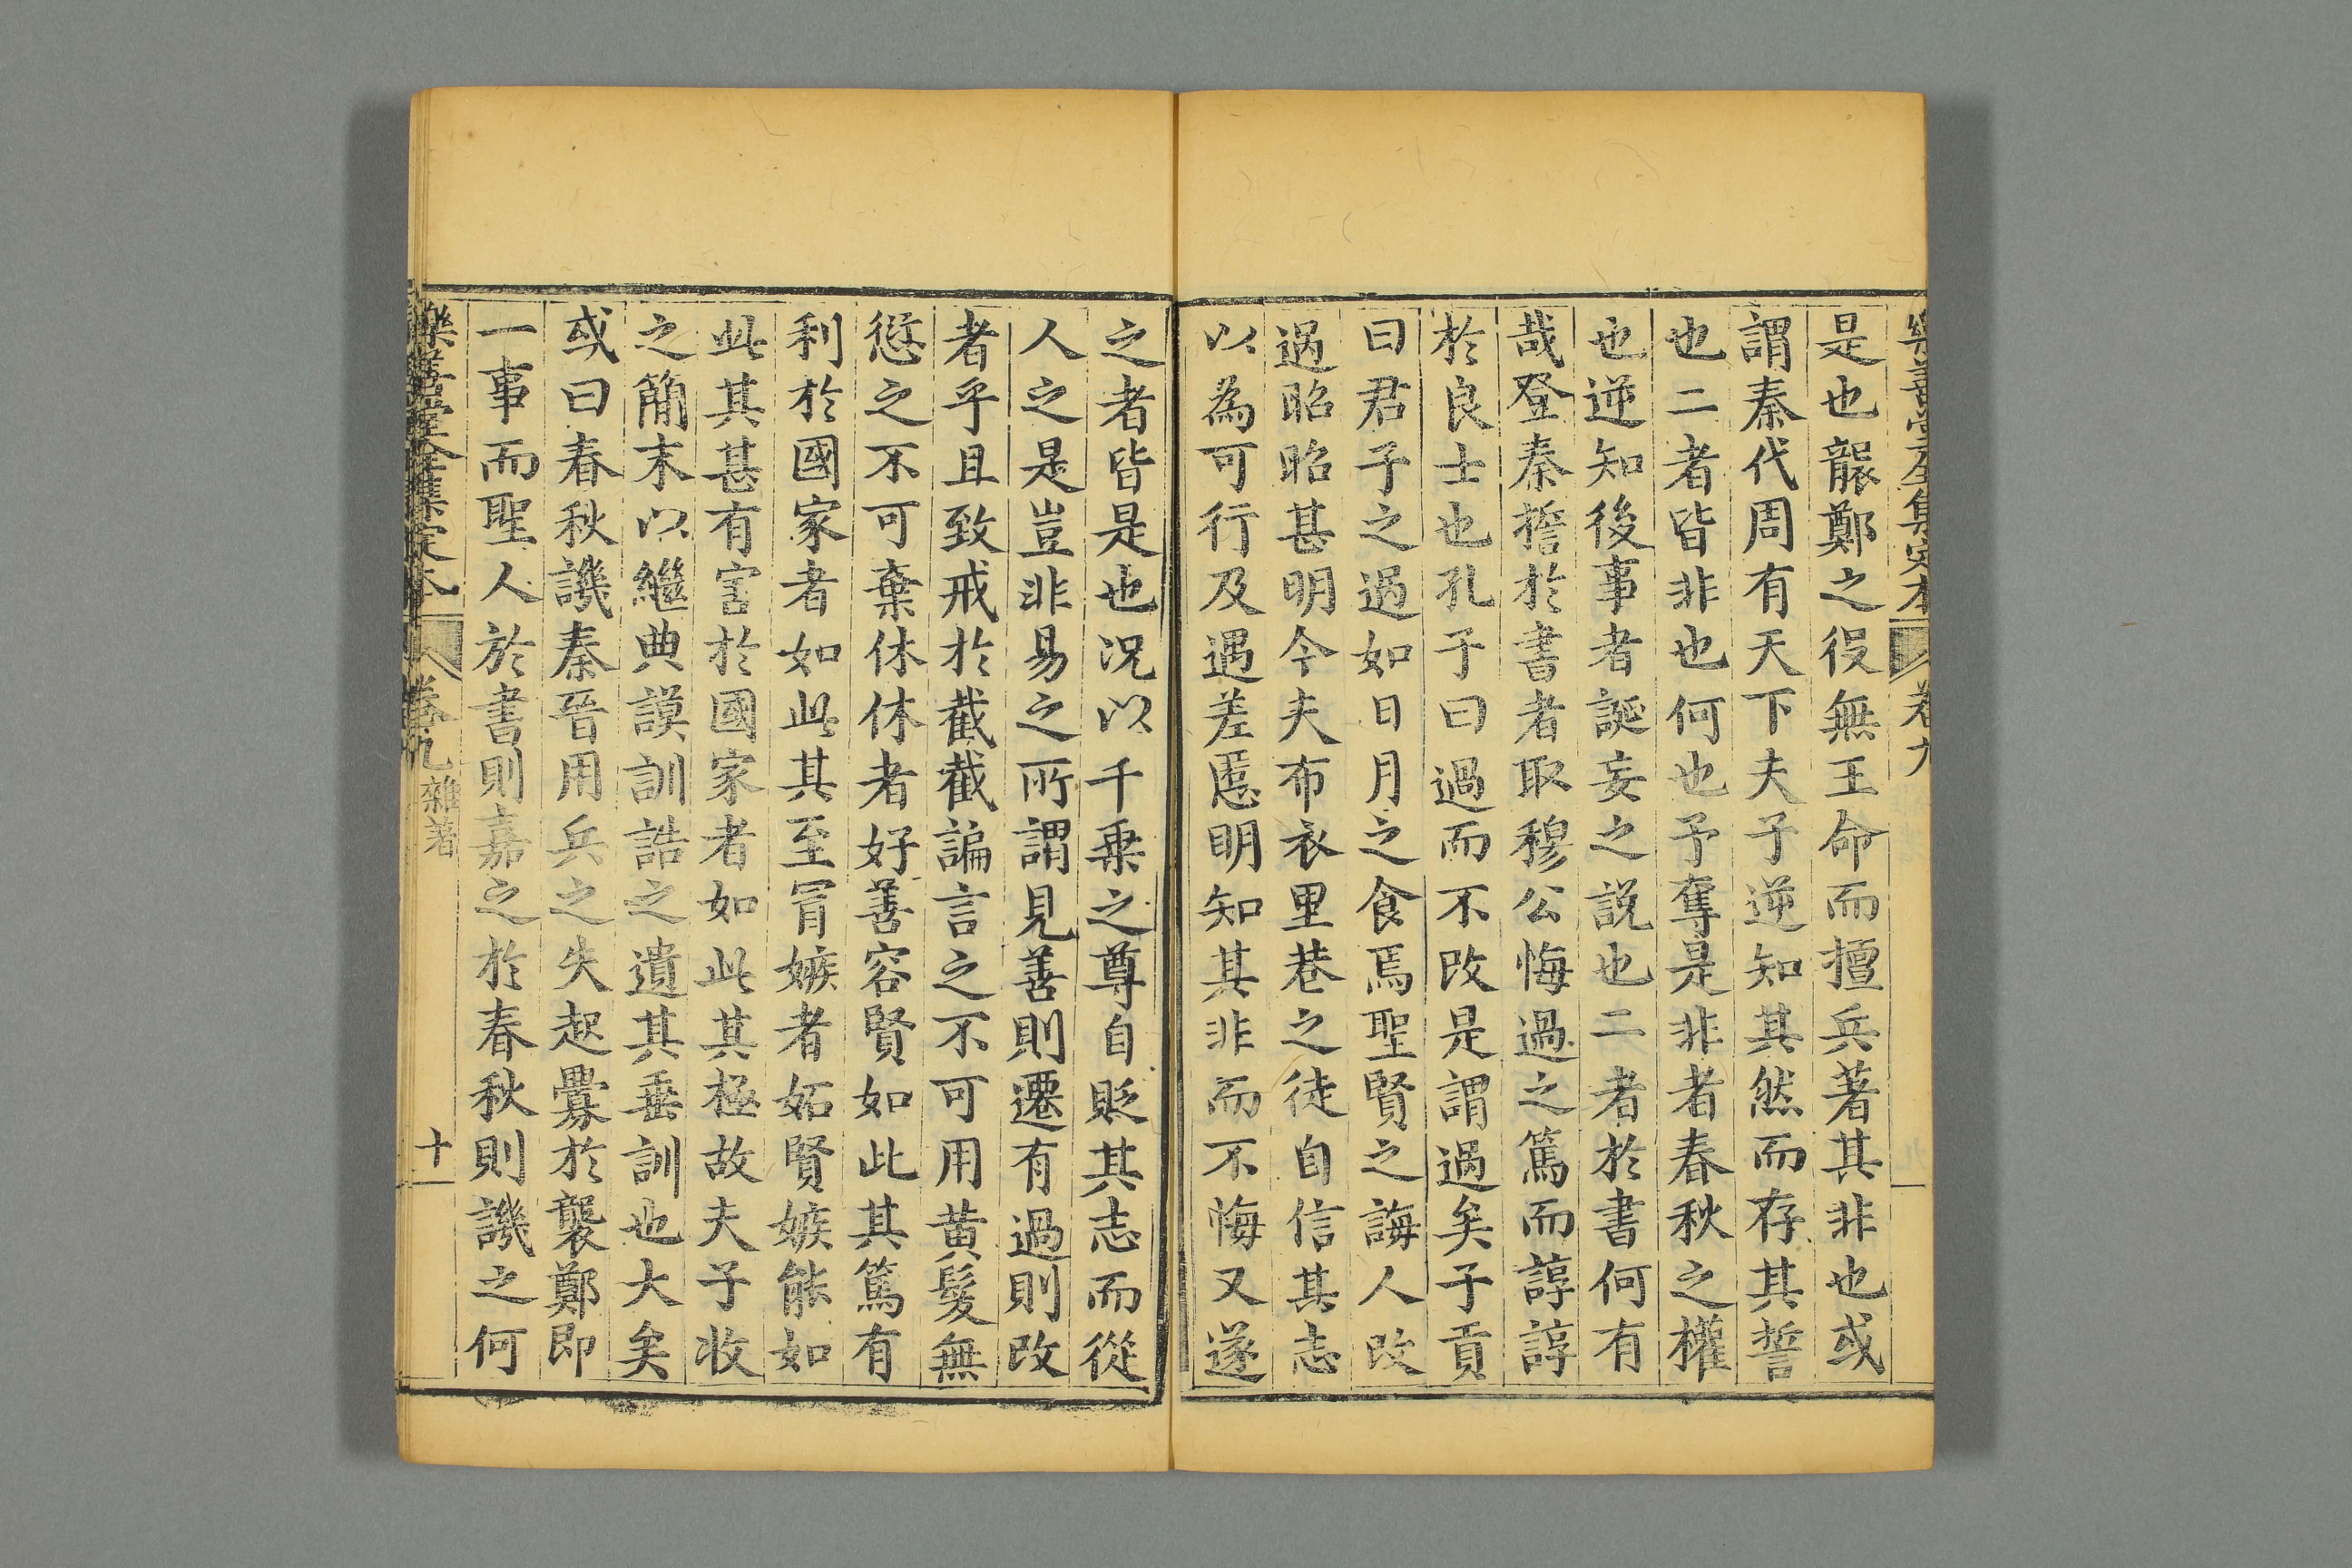 樂善堂全集定本 卷九
是也龍鄭之役無王命而擅兵著其非也或
謂秦代周有天下夫子逆知其然而存其誓
也二者皆非也何也予奪是非者春秋之權
也逆知後事者誕妄之説也二者於書何有
哉登秦誓於書者取穆公悔過之篤而諄諄
於良士也孔子曰過而不改是謂過矣子貢
曰君子之過如日月之食焉聖賢之誨人改
過昭昭甚明今夫布衣里巷之徒自信其志
以為可行及遇差慝明知其非而不悔又遂
之者皆是也况以千乗之尊自貶其志而從
人之是豈非易之所謂見善則遷有過則改
者乎且致戒於截截諞言之不可用黄髮無
愆之不可棄休休者好善容賢如此其篤有
利於國家者如此其至冒嫉者妬賢嫉能如
此其甚有害於國家者如此其極故夫子收
之簡末以繼典謨訓誥之遺其垂訓也大矣
或曰春秋譏秦晉用兵之失起釁於襲鄭即
一事而聖人於書則嘉之於春秋則譏之何
樂善堂全集定本 卷九雜著 十一